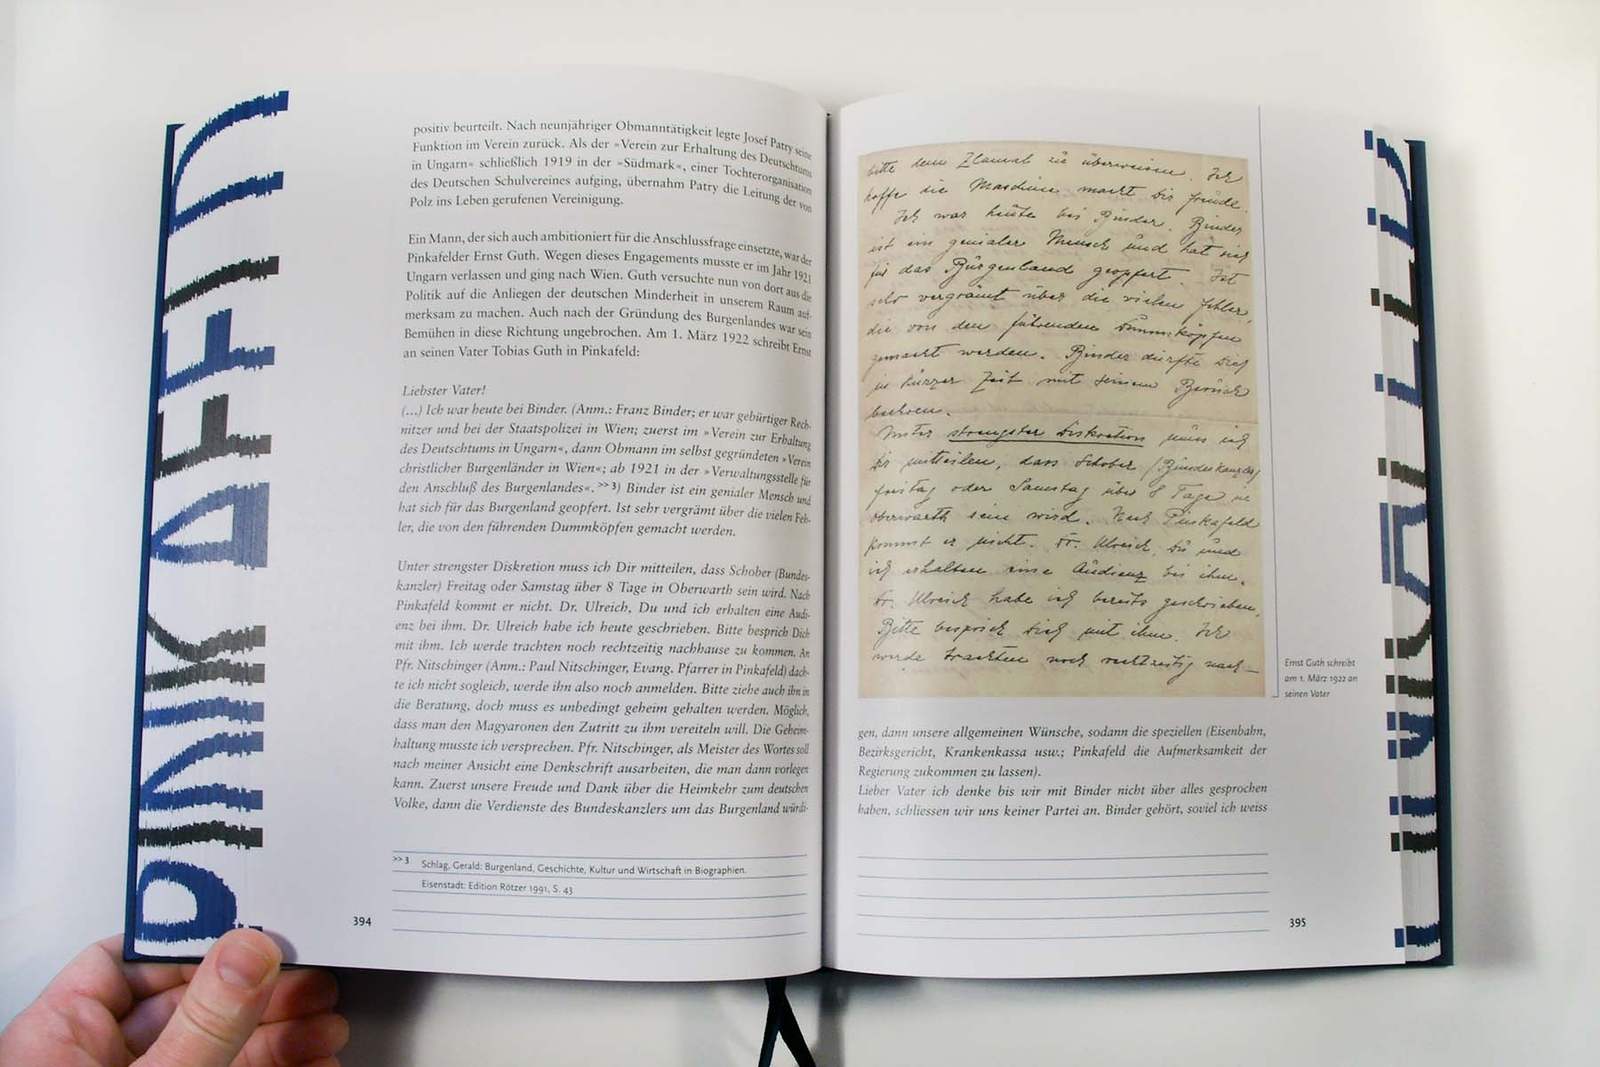 PINKAFELD
positiv beurteilt. Nach neunjähriger Obmanntätigkeit legte Josef Patry seine
Funktion im Verein zurück. Als der »Verein zur Erhaltung des Deutschtums
in Ungarn« schließlich 1919 in der »Südmark«, einer Tochterorganisation
des Deutschen Schulvereines aufging, übernahm Patry die Leitung der von
Polz ins Leben gerufenen Vereinigung.
Ein Mann, der sich auch ambitioniert für die Anschlussfrage einsetzte, war der
Pinkafelder Ernst Guth. Wegen dieses Engagements musste er im Jahr 1921
Ungarn verlassen und ging nach Wien. Guth versuchte nun von dort aus die
Politik auf die Anliegen der deutschen Minderheit in unserem Raum auf-
merksam zu machen. Auch nach der Gründung des Burgenlandes war sein
Bemühen in diese Richtung ungebrochen. Am 1. März 1922 schreibt Ernst
an seinen Vater Tobias Guth in Pinkafeld:
Liebster Vater!
(...) Ich war heute bei Binder. (Anm.: Franz Binder; er war gebürtiger Rech-
nitzer und bei der Staatspolizei in Wien; zuerst im »Verein zur Erhaltung
des Deutschtums in Ungarn«, dann Obmann im selbst gegründeten »Verein
christlicher Burgenländer in Wien«; ab 1921 in der »Verwaltungsstelle für
den Anschluß des Burgenlandes«. >> 3) Binder ist ein genialer Mensch und
hat sich für das Burgenland geopfert. Ist sehr vergrämt über die vielen Feh-
ler, die von den führenden Dummköpfen gemacht werden.
Unter strengster Diskretion muss ich Dir mitteilen, dass Schober (Bundes-
kanzler) Freitag oder Samstag über 8 Tage in Oberwarth sein wird. Nach
Pinkafeld kommt er nicht. Dr. Ulreich, Du und ich erhalten eine Audi-
enz bei ihm. Dr. Ulreich habe ich heute geschrieben. Bitte besprich Dich
mit ihm. Ich werde trachten noch rechtzeitig nachhause zu kommen. An
Pfr. Nitschinger (Anm.: Paul Nitschinger, Evang. Pfarrer in Pinkafeld) dach-
te ich nicht sogleich, werde ihn also noch anmelden. Bitte ziehe auch ihn in
die Beratung, doch muss es unbedingt geheim gehalten werden. Möglich,
dass man den Magyaronen den Zutritt zu ihm vereiteln will. Die Geheim-
haltung musste ich versprechen. Pfr. Nitschinger, als Meister des Wortes soll
nach meiner Ansicht eine Denkschrift ausarbeiten, die man dann vorlegen
kann. Zuerst unsere Freude und Dank über die Heimkehr zum deutschen
Volke, dann die Verdienste des Bundeskanzlers um das Burgenland würdi-
>> 3 Schlag, Gerald: Burgenland, Geschichte, Kultur und Wirtschaft in Biographien.
Eisenstadt: Edition Rötzer 1991, S. 43
394
bitte dem Zlamal zu überweisen. Ich
hoffe die Maschine macht Dir Freude.
Ich war heute bei Binder. Binder
ist ein genialer Mensch und hat sich
für das Burgenland geopfert. Ist
sehr vergrämt über die vielen Fehler,
die von den führenden Dummköpfen
gemacht werden. Binder dürfte Dich
in kurzer Zeit mit seinem Besuch
beehren.
Unter strengster Diskretion muss ich
Dir mitteilen, dass Schober (Bundeskanzler)
Freitag oder Samstag über 8 Tage in
Oberwarth sein wird. Nach Pinkafeld
kommt er nicht. Dr. Ulreich, Du und
ich erhalten eine Audienz bei ihm.
Dr. Ulreich habe ich bereits geschrieben.
Bitte besprich Dich mit ihm. Ich
werde trachten noch rechtzeitig nach-
Ernst Guth schreibt
am 1. März 1922 an
seinen Vater
gen, dann unsere allgemeinen Wünsche, sodann die speziellen (Eisenbahn,
Bezirksgericht, Krankenkassa usw.; Pinkafeld die Aufmerksamkeit der
Regierung zukommen zu lassen).
Lieber Vater ich denke bis wir mit Binder nicht über alles gesprochen
haben, schliessen wir uns keiner Partei an. Binder gehört, soviel ich weiss
395